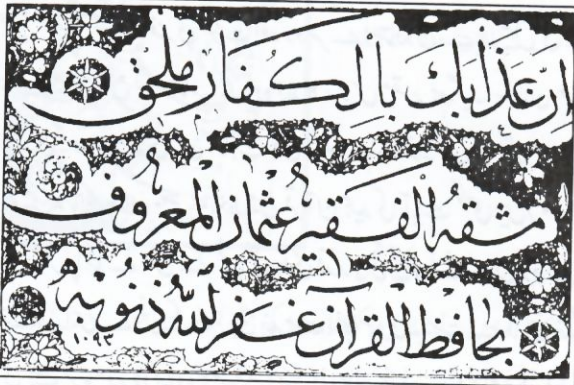 اِنَّ عَذَابَكَ بِالْكُفَّارِ مُلْحِق
مشقه الفقير عثمان المعروف
بحافظ القرآن غفر الله ذنوبه ١٠٩٣